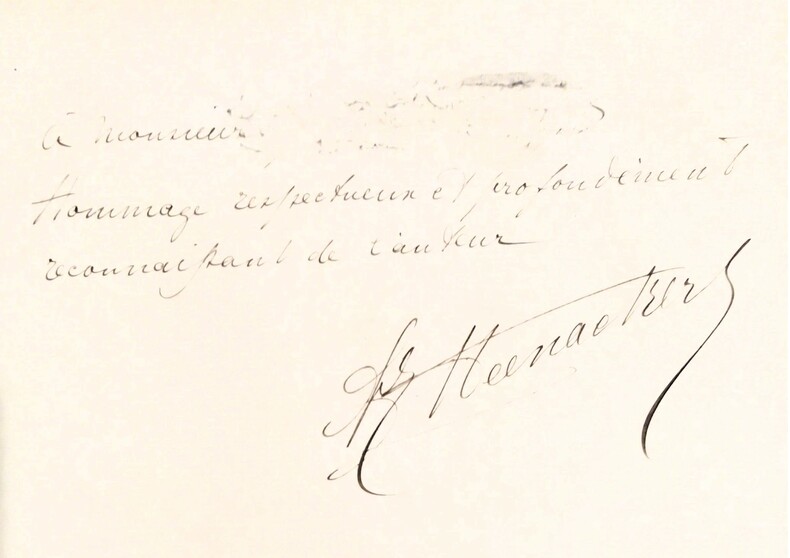 à Monsieur
Hommage respectueux et profondément
reconnaissant de l'auteur